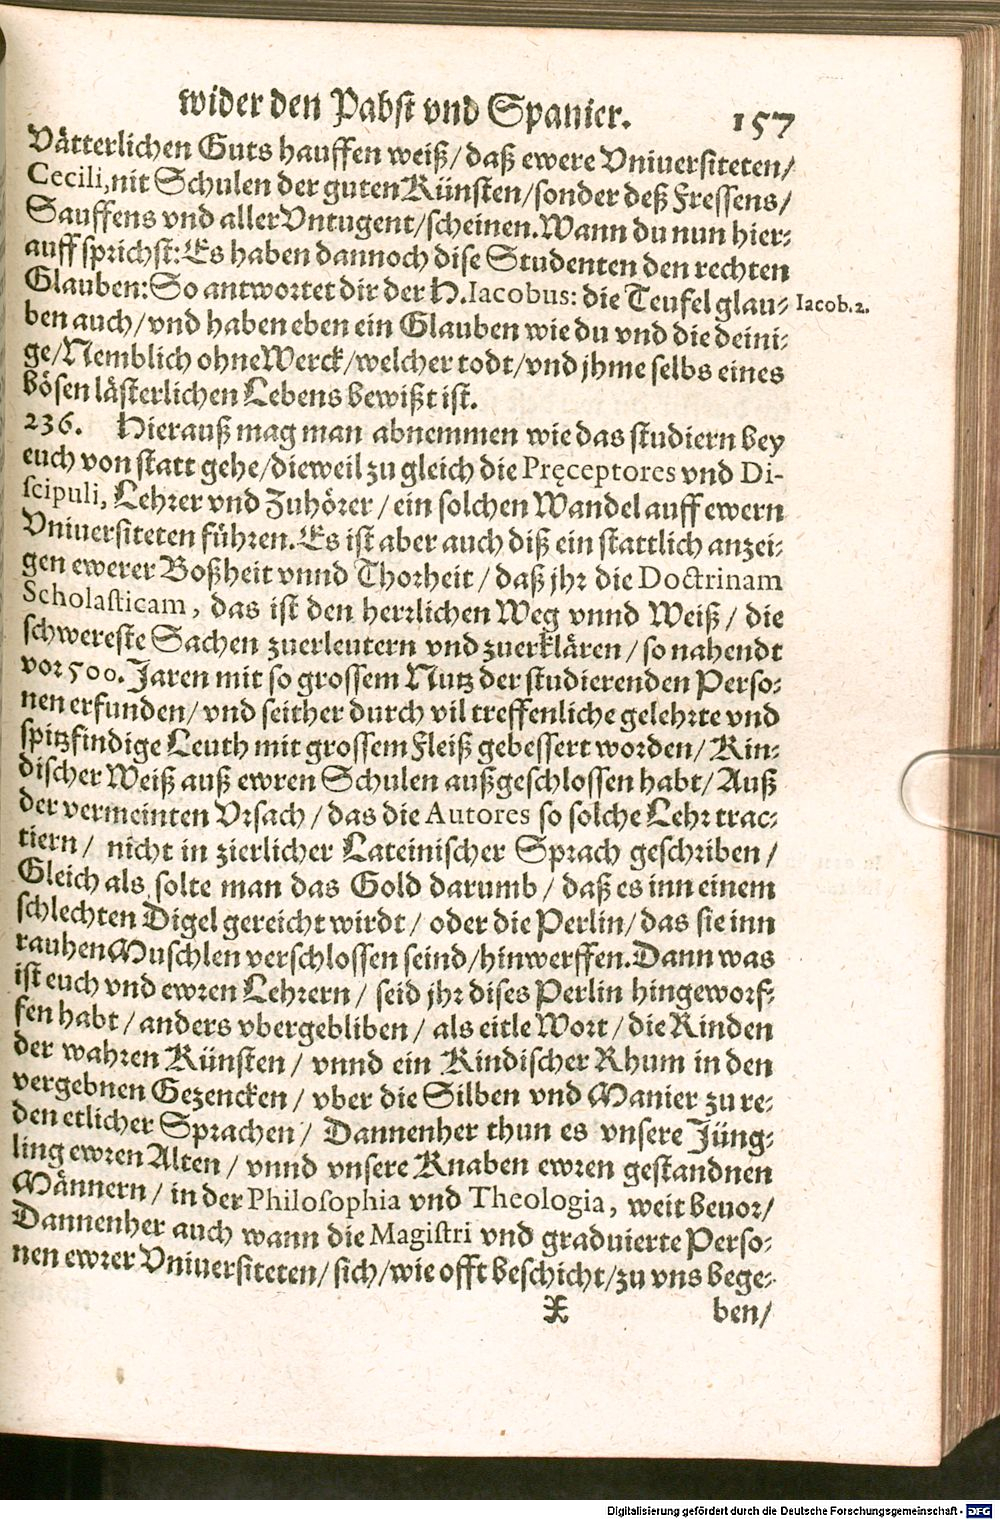 wider den Pabst vnd Spanier. 157
Vätterlichen Guts hauffen weiß/ daß ewere Vniuersiteten/
Cecili, nit Schulen der guten Künsten/ sonder deß Fressens/
Sauffens vnd aller Vntugent/ scheinen. Wann du nun hier-
auff sprichst: Es haben dannoch dise Studenten den rechten
Glauben: So antwortet dir der H. Iacobus: die Teufel glau-
Iacob. 2.
ben auch/ vnd haben eben ein Glauben wie du vnd die deini-
ge/ Nemblich ohne Werck/ welcher todt/ vnd jhme selbs eines
bösen lästerlichen Lebens bewißt ist.
236. Hierauß mag man abnemmen wie das studiern bey
euch von statt gehe/ dieweil zu gleich die Pręceptores vnd Di-
scipuli, Lehrer vnd Zuhörer/ ein solchen Wandel auff ewern
Vniuersiteten führen. Es ist aber auch diß ein stattlich anzei-
gen ewerer Boßheit vnnd Thorheit/ daß jhr die Doctrinam
Scholasticam, das ist den herrlichen Weg vnnd Weiß/ die
schwereste Sachen zuerleutern vnd zuerklären/ so nahendt
vor 500. Jaren mit so grossem Nutz der studierenden Perso-
nen erfunden/ vnd seither durch vil treffenliche gelehrte vnd
spitzfindige Leuth mit grossem Fleiß gebessert worden/ Kin-
discher Weiß auß ewren Schulen außgeschlossen habt/ Auß
der vermeinten Vrsach/ das die Autores so solche Lehr trac-
tiern/ nicht in zierlicher Lateinischer Sprach geschriben/
Gleich als solte man das Gold darumb/ daß es inn einem
schlechten Digel gereicht wirdt/ oder die Perlin/ das sie inn
rauhen Muschlen verschlossen seind/ hinwerffen. Dann was
ist euch vnd ewren Lehrern/ seid jhr dises Perlin hingeworf-
fen habt/ anders vbergebliben/ als eitle Wort/ die Rinden
der wahren Künsten/ vnnd ein Kindischer Rhum in den
vergebnen Gezencken/ vber die Silben vnd Manier zu re-
den etlicher Sprachen/ Dannenher thun es vnsere Jüng-
ling ewren Alten/ vnnd vnsere Knaben ewren gestandnen
Männern/ in der Philosophia vnd Theologia, weit beuor/
Dannenher auch wann die Magistri vnd graduierte Perso-
nen ewrer Vniuersiteten/ sich/ wie offt beschicht/ zu vns bege-
X ben/
Digitalisierung gefördert durch die Deutsche Forschungsgemeinschaft - DFG